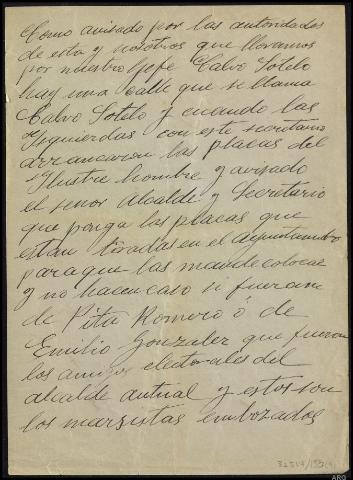 Como avisado por las autoridades
de esta y nosotros que lloramos
por nuestro Jefe Calvo Sotelo
hay una calle que se llama
Calvo Sotelo y cuando las
Izquierdas con este secretario
arrancaron las placas del
Ilustre hombre y avisado
el señor Alcalde y Secretario
que ponga las placas que
estan tiradas en el Ayuntamto
para que las mande colocar
y no hacen caso si fueran
de Pita Romero ó de
Emilio Gonzalez que fueron
los amigos electorales del
alcalde autual y estos son
los marxistas embozados
ARQ